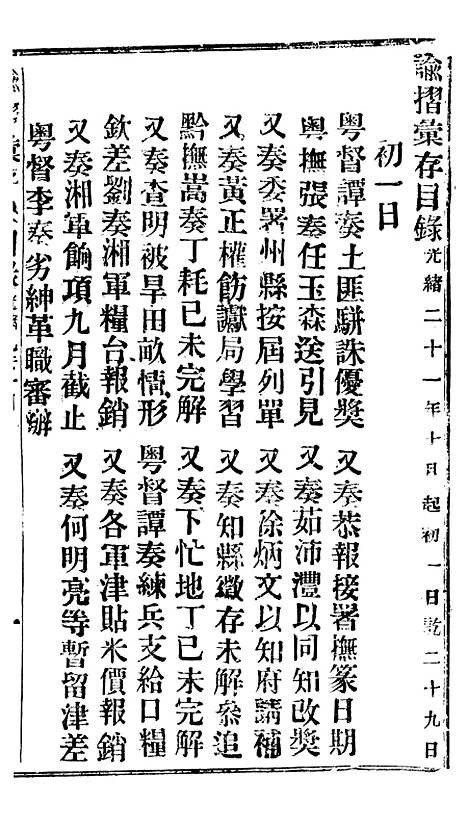 諭摺彙存目錄 光緒二十一年十月起初一日訖二十九日
初一日
粵督譚奏土匪駢誅優獎 又奏恭報接署撫篆日期
輿撫張奏任玉森送引見 又奏茹沛灃以同知改獎
又奏委署州縣按屆列單 又奏徐炳文以知府請補
又奏黃正權飭讞局學習 又奏知縣徵存未解參追
黔撫嵩奏丁耗已未完解 又奏下忙地丁已未完解
又奏查明被旱田畝情形 粵督譚奏練兵支給口糧
欽差劉奏湘軍糧台報銷 又奏各軍津貼米價報銷
又奏湘軍餉項九月截止 又奏何明亮等暫留津差
粵督李奏劣紳革職審辦